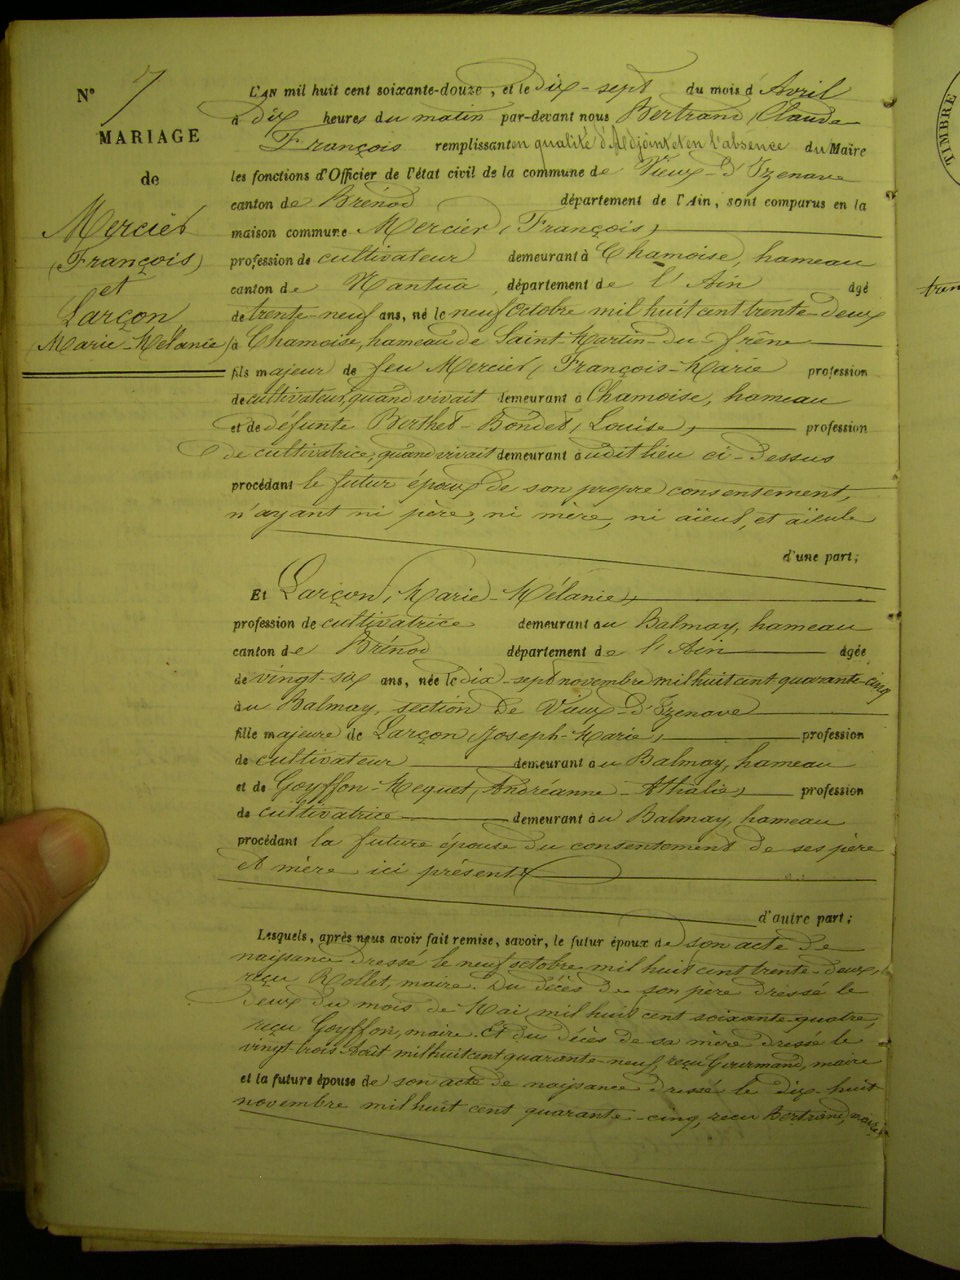 N° 7
MARIAGE
de
Mercier
(François)
et
Larçon
(Marie-Mélanie)
L'AN mil huit cent soixante-douze, et le dix-sept du mois d'Avril
à dix heures du matin par-devant nous Bertrand, Claude
François remplissant en qualité d'Adjoint et en l'absence du Maire
les fonctions d'Officier de l'état civil de la commune de Vieux-d'Izenave
canton de Brénod département de l'Ain, sont comparus en la
maison commune Mercier (François)
profession de cultivateur demeurant à Chamoise, hameau
canton de Nantua, département de l'Ain âgé
de trente-neuf ans, né le neuf Octobre mil huit cent trente-deux
à Chamoise, hameau de Saint-Martin-du-frêne
fils majeur de feu Mercier, François-Marie profession
de cultivateur, quand vivait demeurant à Chamoise, hameau
et de défunte Berthet-Bondet, Louise, profession
de cultivatrice, quand vivait demeurant audit lieu ci-dessus
procédant le futur époux de son propre consentement,
n'ayant ni père, ni mère, ni aïeul, et aïeule
d'une part;
Et Larçon, Marie-Mélanie,
profession de cultivatrice demeurant au Balmay, hameau
canton de Brénod département de l'Ain âgée
de vingt-six ans, née le dix-sept novembre mil huit cent quarante-cinq
au Balmay, section de Vieux-d'Izenave
fille majeure de Larçon, Joseph-Marie, profession
de cultivateur demeurant au Balmay, hameau
et de Goyffon-Mequet, Andréanne-Athalie, profession
de cultivatrice demeurant au Balmay, hameau
procédant la future épouse du consentement de ses père
et mère ici présents
d'autre part;
Lesquels, après nous avoir fait remise, savoir, le futur époux de son acte de
naissance dressé le neuf octobre mil huit cent trente-deux,
reçu Rollet, maire. Du décès de son père dressé le
deux du mois de Mai mil huit cent soixante-quatre,
reçu Goyffon, maire. Et du décès de sa mère dressé le
vingt-trois Août mil huit cent quarante-neuf, reçu Gourmand, maire
et la future épouse de son acte de naissance dressé le dix-huit
novembre mil huit cent quarante-cinq, reçu Bertrand, maire
TIMBRE